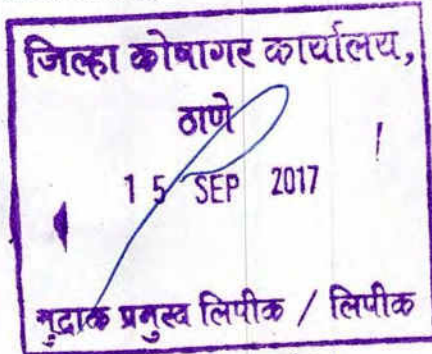 जिल्हा कोषागर कार्यालय,
ठाणे
15 SEP 2017
मुद्रांक प्रमुख लिपीक / लिपीक